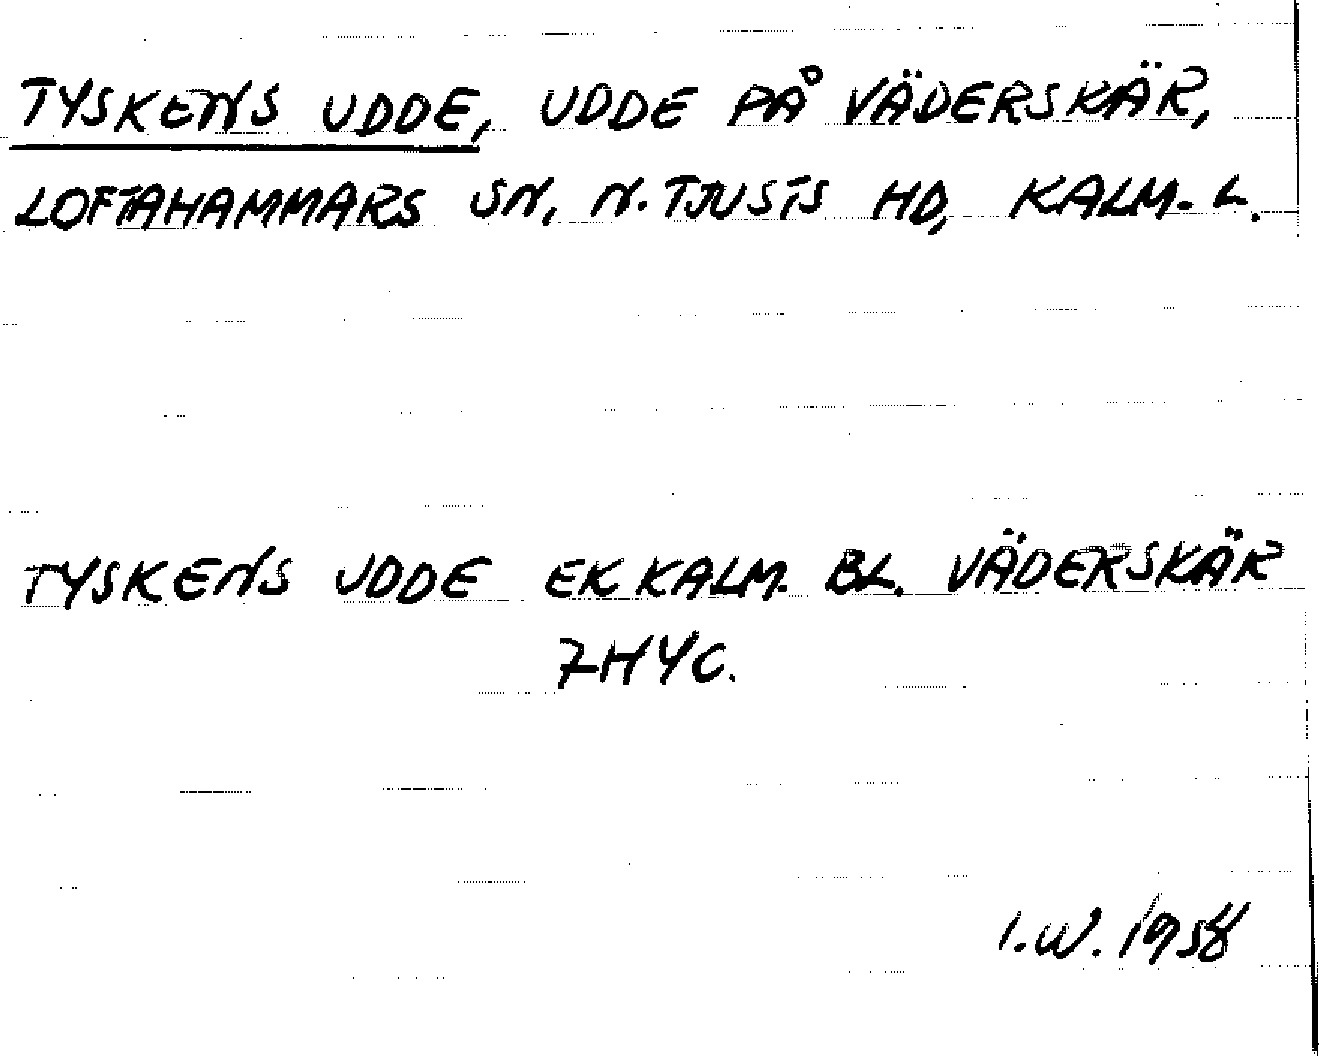 TYSKENS UDDE, UDDE PÅ VÄDERSKÄR,
LOFTAHAMMARS SN, N. TJUSTS HD, KALM. L.
TYSKENS UDDE EK KALM. BL. VÄDERSKÄR
7H4C.
I.W. 1958